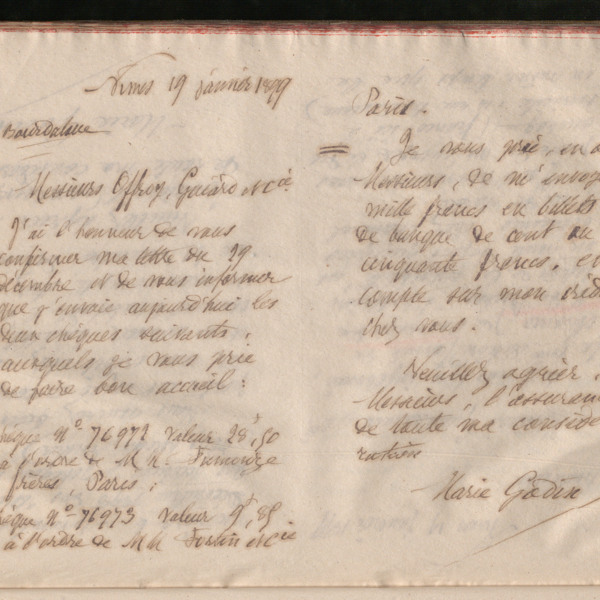 Nîmes 19 janvier 1899
Bourdaloue
Messieurs Offroy, Guiard & Cie
J'ai l'honneur de vous
confirmer ma lettre du 29
décembre et de vous informer
que j'envoie aujourd'hui les
deux chèques suivants,
auxquels je vous prie
de faire bon accueil :
chèque N° 76972 valeur 28f,50
à l'ordre de MM. Fumouze
frères Paris ;
chèque N° 76973 valeur 9f,85
à l'ordre de MM Fortin & Cie
Paris.
Je vous prie, en o
Messieurs, de m'envoye
mille francs en billets
de banque de cent ou
cinquante francs, et
compte sur mon créd
chez vous.
Veuillez agréer,
Messieurs, l'assuran
de toute ma considé
ration
Marie Godin